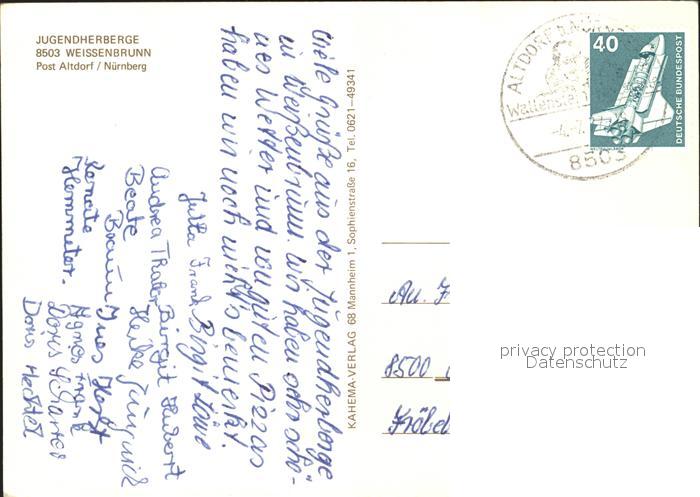 JUGENDHERBERGE
8503 WEISSENBRUNN
Post Altdorf / Nürnberg
Viele Grüße aus der Jugendherberge
in Weißenbrunn. Wir haben sehr schö-
nes Wetter und von guten Pizzas
haben wir noch nichts bemerkt.
Jutta Frank Birgit Löwe
Andrea Thaler Birgit Hubert
Beate Heike
Braun Ines
Renate Agnes
Hemmeter. Doris
Doris Hechtel
KAHEMA-VERLAG 68 Mannheim 1, Sophienstraße 16, Tel. 0621-49341
ALTDORF b.
Wallenstein
8503
40
DEUTSCHE BUNDESPOST
An. F
8500
privacy protection
Datenschutz